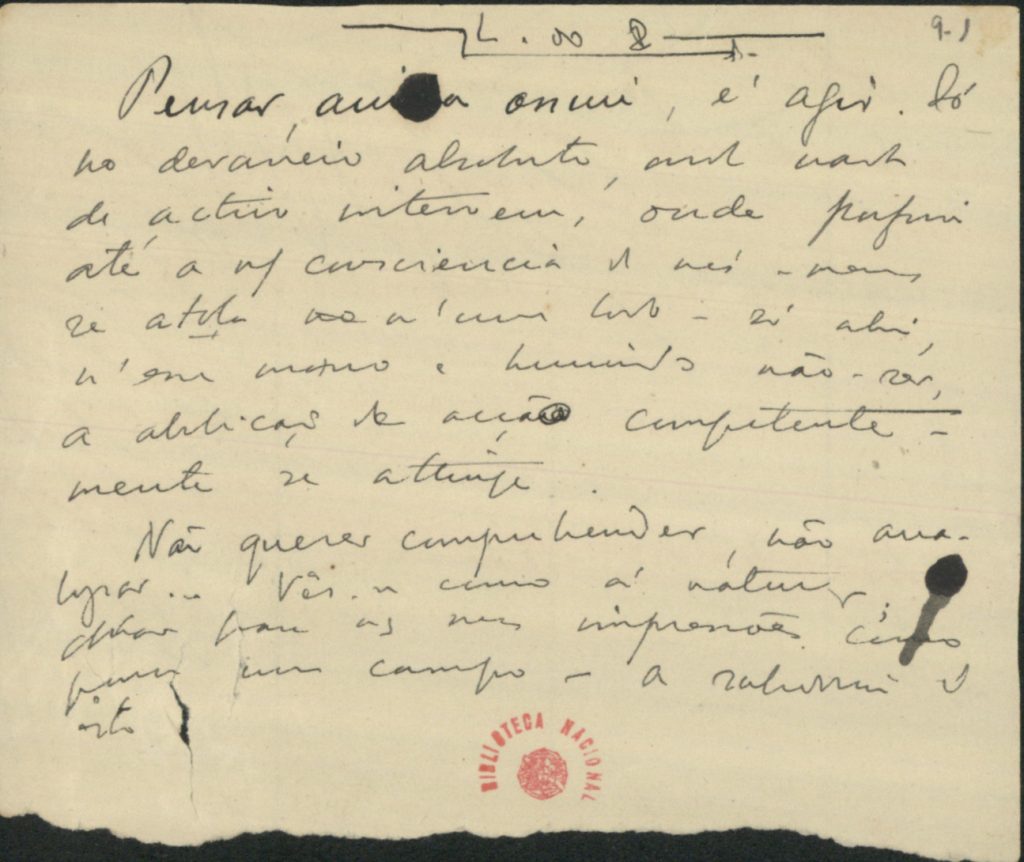 L. do D.
9-1
Pensar, ainda assim, é agir. Só
no devaneio absoluto, onde nada
de activo intervem, onde por fim
até a nossa consciencia de nós-mesmos
se atola n'um lodo - só ahi,
n'esse morno e humido não-ser,
a abdicação da acção competente-
mente se attinge.
Não querer comprehender, não ana-
lysar... Vêr-se como á natureza;
olhar para as suas impressões como
para um campo - a sabedoria é
isto
BIBLIOTECA NACIONAL